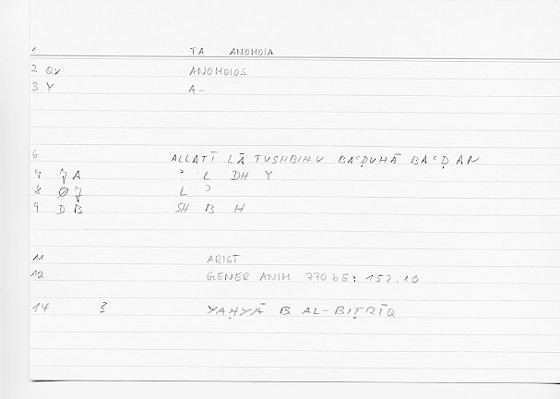 1 TA ANOMOIA
2 Qx ANOMOIOS
3 Y A-
6 ALLATĪ LĀ TUSHBIHU BAʿḌUHĀ BAʿḌAN
7 A ʾ L DH Y
8 L ʾ
9 D B SH B H
11 ARIST
12 GENER ANIM 770 b5: 152.10
14 2 YAḤYĀ B AL-BIṬRĪQ